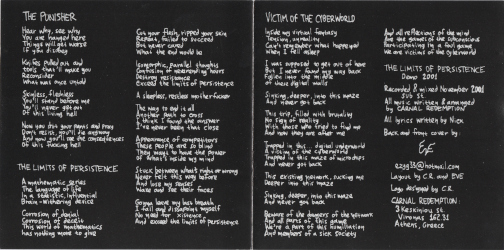 THE PUNISHER
Hear why, see why
You are hanged here
Things will get worse
If you disobey
Knifes pulled out and
tools that'll make you
Reconsider
What was once untold
Skinless, fleshless
You'll stand before me
You'll never get out
Of this living hell
Now you put your hands and pray
Don't resist, you'll die anyway
And now you'll see the consequences
Of this fucking hell
THE LIMITS OF PERSISTENCE
A mathematic series
The language of life
In a sadistic, influential
Brain-withering device
Corrosion of denial
Corrosion of desire
This world of mathematics
Has nothing more to give
Cut your flesh, ripped your skin
Repeat, failed to succeed
But never cared
What the end would be
Isomorphic, parallel thoughts
Confusion of neverending hours
Destroy resistance
Exceed the limits of persistence
A sleepless, restless mother-fucker
The way to end it all
Another path to cross
I think I found the answer
I've never been that close
Appearance of compositions
These people are so blind
They want to have the power
Of what's inside my mind
Stuck between what's right or wrong
Never felt this way before
And lose my senses
Wake and see their faces
Gonna leave my last breath
I fail and dissapoint myself
No need for existence
And exceed the limits of persistence
VICTIM OF THE CYBERWORLD
Inside my virtual fantasy
Tension, unreality
Can't remember what happened
When I fell asleep
I was supposed to get out of here
But never found my way back
Entire into the middle
Of these digital walls
Sinking deeper, into this maze
And never got back
This trip, filled with brutality
No sign of reality
With those who tried to find me
And why they are after me
Trapped in this... digital underworld
A victim of the cyberworld
Trapped in this maze of microchips
And never got back
This existing network, sucking me
Deeper into this maze
Sinking deeper, into this maze
And never got back
Beware of the dangers of the network
And all parts of this game
We're a part of this humiliation
And members of a sick society
And all reflections of the mind
Are the games of the subconscious
Participating in a foul game
We are victims of the cyberworld
THE LIMITS OF PERSISTENCE
Demo 2001
Recorded & mixed November 2001
All music written & arranged
by CARNAL REDEMPTION
All lyrics written by Nick
Back and front cover by:
Layout by C.R. and EVE
Logo designed by C.R.
CARNAL REDEMPTION:
3 Keskinioy st.
Vironas 162 31
Athens, Greece